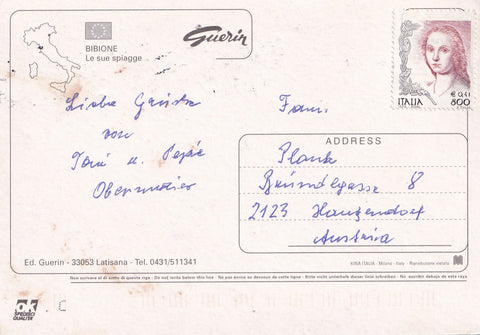 BIBIONE
Le sue spiagge
Guerin
€ 0,41
ITALIA 800
Liebe Grüße
von
Toni u.
Obermaier
Fam.
ADDRESS
Plank
8
2123 Hautzendorf
Austria
Ed. Guerin - 33053 Latisana - Tel. 0431/511341
KINA ITALIA - Milano - Italy - Riproduzione vietata
Non scrivere al di sotto di questa riga - Do not write below this line - Ne pas écrire au dessous de cette ligne - Bitte nicht unterhalb dieser Linie schreiben - No escribir debajo de esta raya
ok
SPEDISCI
QUALITÀ